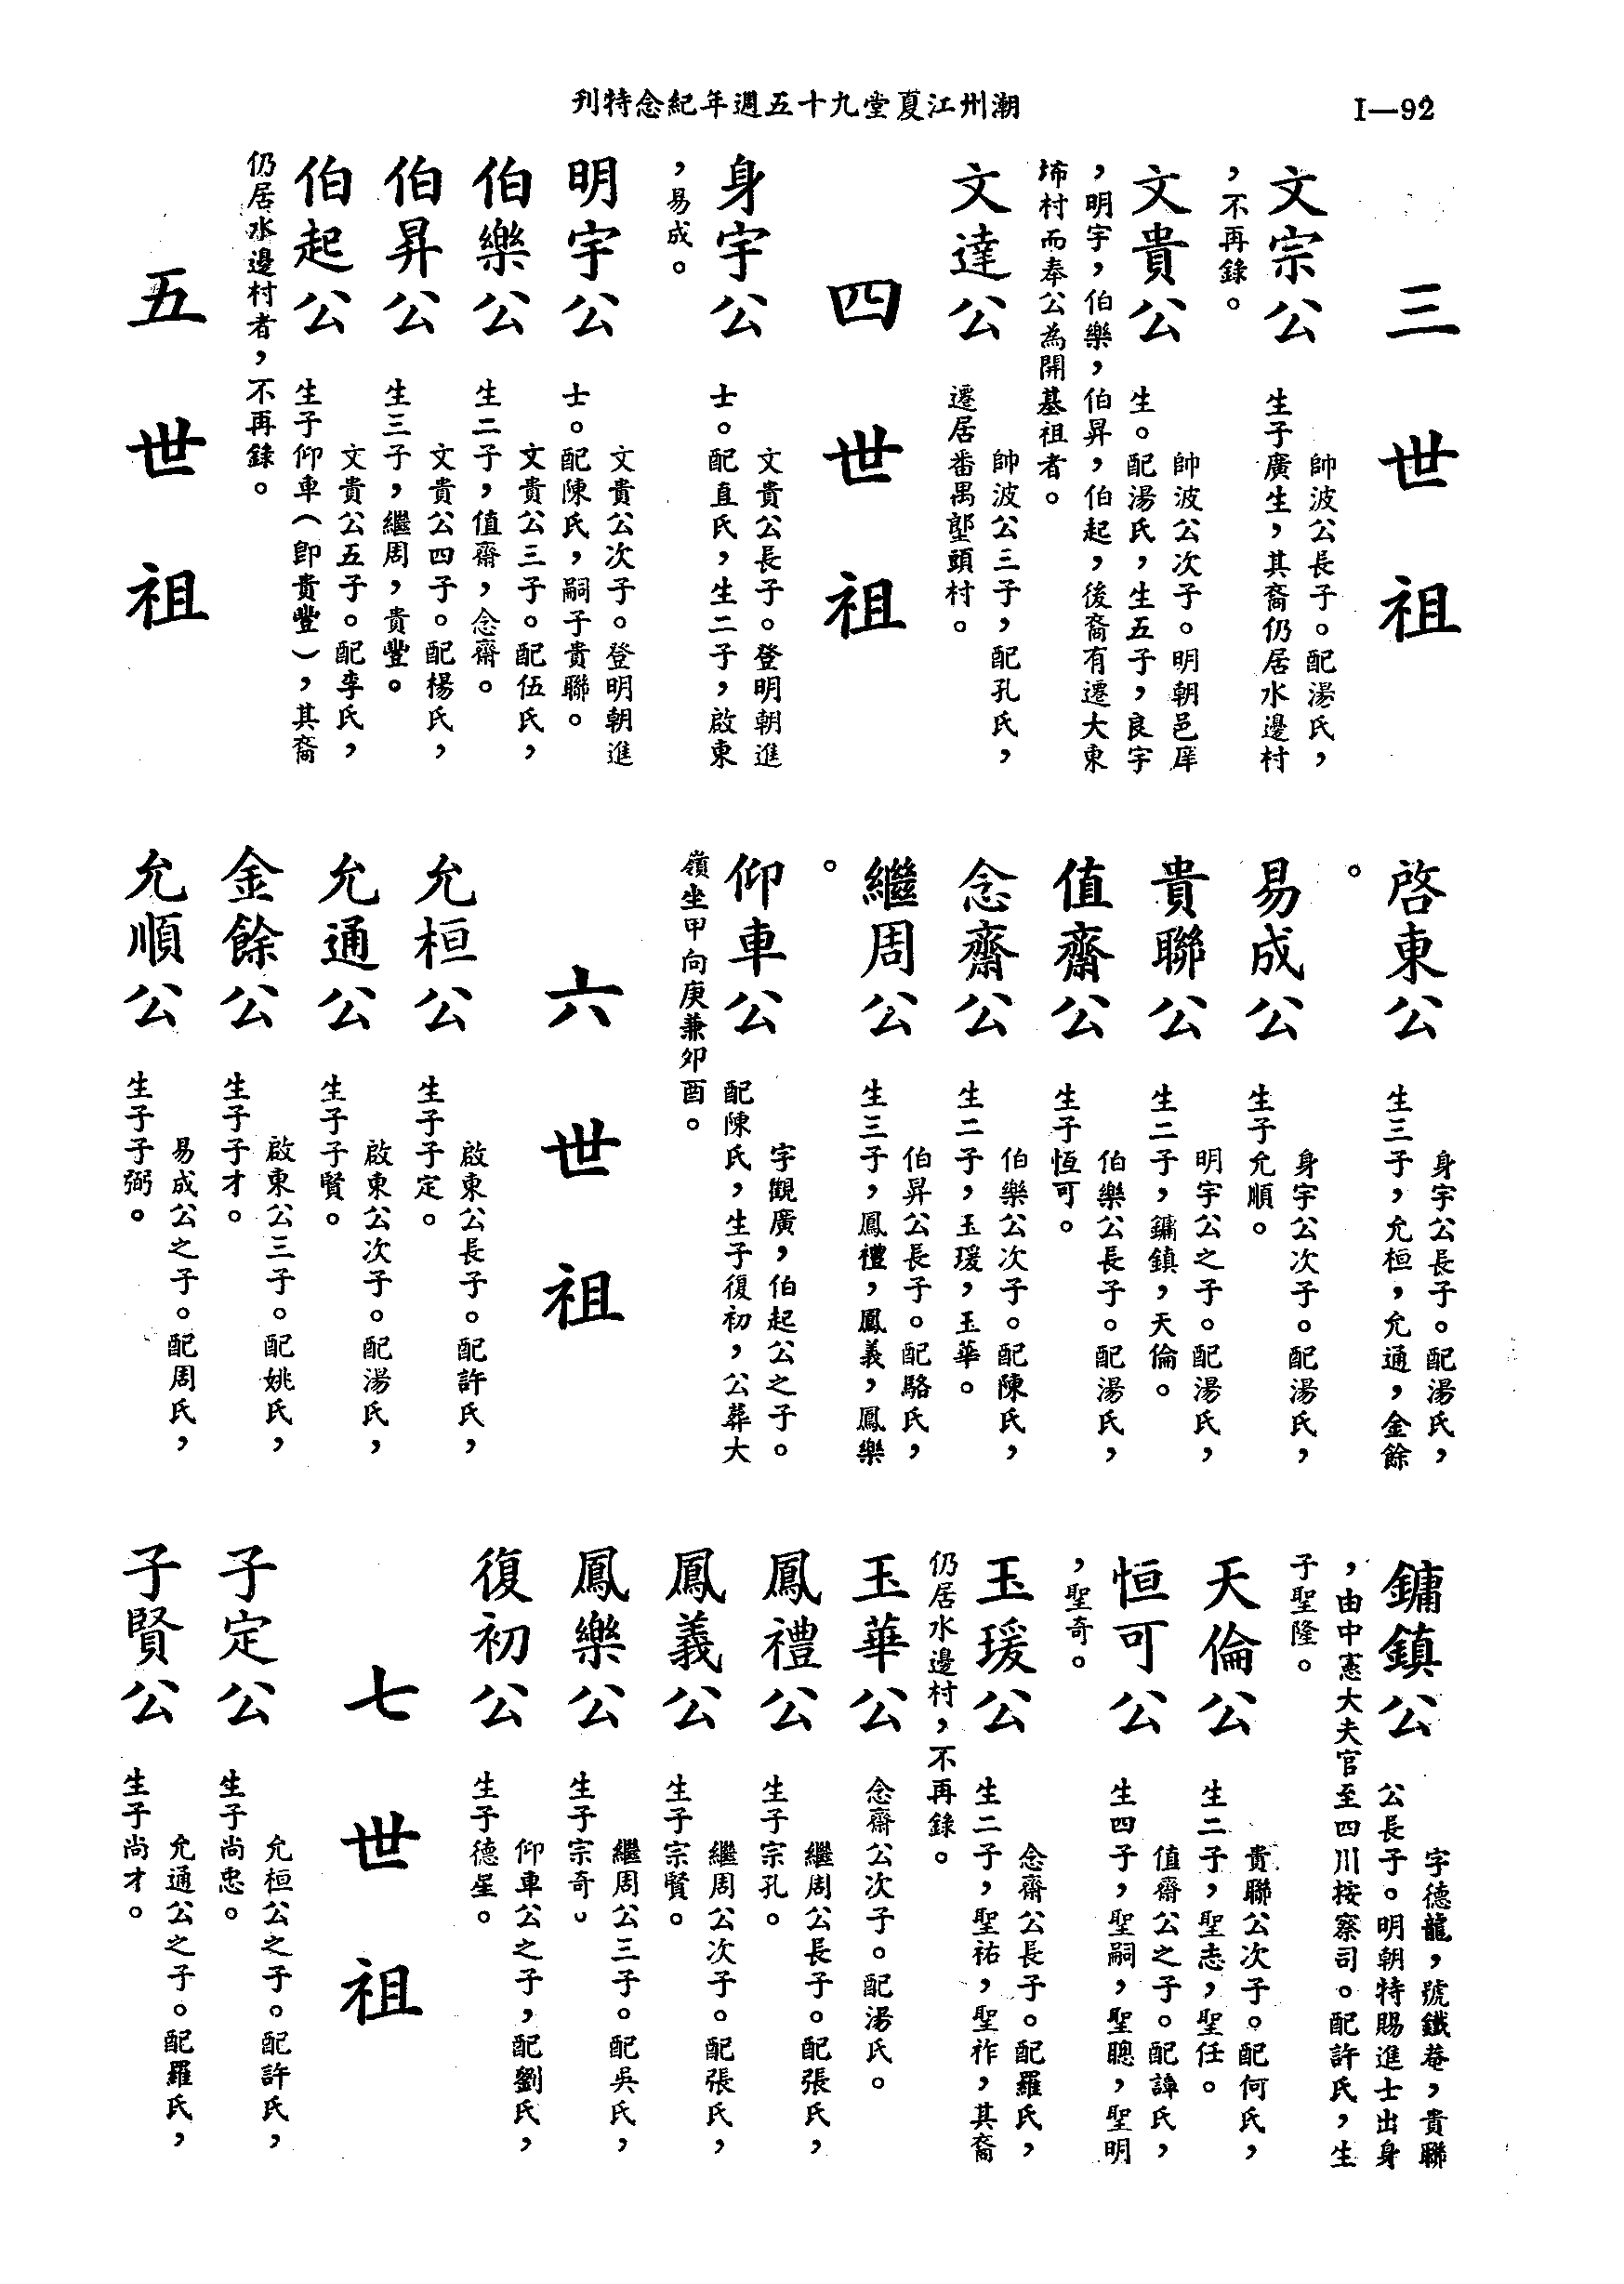 潮州江夏堂九十五週年紀念特刊
I—92
三世祖
文宗公
帥波公長子。配湯氏，
生子廣生，其裔仍居水邊村
，不再錄。
文貴公
帥波公次子。明朝邑庠
生。配湯氏，生五子，良宇
，明宇，伯樂，伯昇，伯起，後裔有遷大東
㘵村而奉公為開基祖者。
文達公
帥波公三子，配孔氏，
遷居番禺鄧頭村。
四世祖
身宇公
文貴公長子。登明朝進
士。配直氏，生二子，啟東
，易成。
明宇公
文貴公次子。登明朝進
士。配陳氏，嗣子貴聯。
伯樂公
文貴公三子。配伍氏，
生二子，值齋，念齋。
伯昇公
文貴公四子。配楊氏，
生三子，繼周，貴豐。
伯起公
文貴公五子。配李氏，
生子仰車（即貴豐），其裔
仍居水邊村者，不再錄。
五世祖
啓東公
身宇公長子。配湯氏，
生三子，允桓，允通，金餘
。
易成公
身宇公次子。配湯氏，
生子允順。
貴聯公
明宇公之子。配湯氏，
生二子，鏞鎮，天倫。
值齋公
伯樂公長子。配湯氏，
生子恆可。
念齋公
伯樂公次子。配陳氏，
生二子，玉瑗，玉華。
繼周公
伯昇公長子。配駱氏，
生三子，鳳禮，鳳義，鳳樂
。
仰車公
字觀廣，伯起公之子。
配陳氏，生子復初，公葬大
嶺坐甲向庚兼卯酉。
六世祖
允桓公
啟東公長子。配許氏，
生子子定。
允通公
啟東公次子。配湯氏，
生子子賢。
金餘公
啟東公三子。配姚氏，
生子子才。
允順公
易成公之子。配周氏，
生子子弼。
鏞鎮公
字德龍，號鐵菴，貴聯
公長子。明朝特賜進士出身
，由中憲大夫官至四川按察司。配許氏，生
子聖隆。
天倫公
貴聯公次子。配何氏，
生二子，聖志，聖任。
恒可公
值齋公之子。配諱氏，
生四子，聖嗣，聖聰，聖明
，聖奇。
玉瑗公
念齋公長子。配羅氏，
生二子，聖祐，聖祚，其裔
仍居水邊村，不再錄。
玉華公
念齋公次子。配湯氏。
鳳禮公
繼周公長子。配張氏，
生子宗孔。
鳳義公
繼周公次子。配張氏，
生子宗賢。
鳳樂公
繼周公三子。配吳氏，
生子宗奇。
復初公
仰車公之子，配劉氏，
生子德星。
七世祖
子定公
允桓公之子。配許氏，
生子尚忠。
子賢公
允通公之子。配羅氏，
生子尚才。